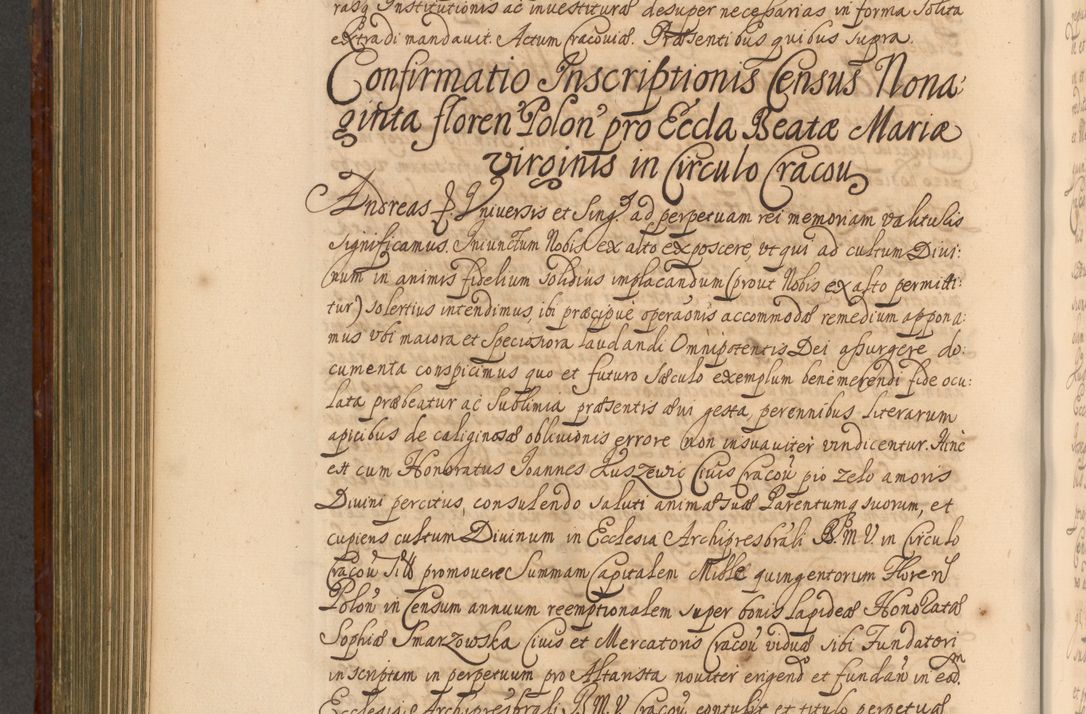 rasq Institutionis ac investituras desuper necessarias in forma solita
extradi mandavit. Actum Cracoviæ. Præsentibus quibus supra.
Confirmatio Inscriptionis Census Nona:
ginta floren Polon pro Eccla Beatæ Mariæ
Virginis in Circulo Cracou
Andreas Universis et Sing. ad perpetuam rei memoriam valituris
significamus. Iniunctum Nobis ex alto exposcere, ut qui ad cultum Divi:
num in animis fidelium solidius implacandum (prout Nobis ex alto permitti:
tur) solertius intendimus, ibi præcipue operaonis accommodæ remedium appona:
mus ubi maiora et speciosiora laudandi Omnipotentis Dei assurgere do:
cumenta conspicimus quo et futuro sæculo exemplum benemerendi fide ocu:
lata præbeatur ac sublimia præsentis ævi gesta, perennibus literarum
apicibus de caliginosæ oblivionis errore non insuaviter vindicentur. Hinc
est cum Honoratus Joannes Kuszewic Civis Cracou pio zelo amoris
Divini percitus, consulendo saluti animæ suæ Parentumq suorum, et
cupiens cultum Divinum in Ecclesia Archipresbrali B. M. V. in Circulo
Cracou promovere Summam Capitalem Mille quingentorum Floren
Polon in Censum annuum reemptionalem super bonis lapideæ Honoratæ
Sophiæ Smarzowska Civis et Mercatoris Cracou viduæ sibi Fundatori
inscriptam in perpetuum pro Altarista noviter erigend et fundan in ead.
Ecclesia Archipresbrali B. M. V. Cracou contulit et titulo perpetuæ